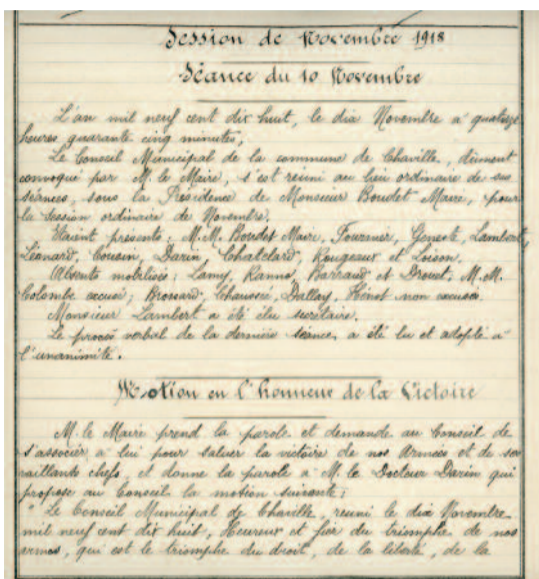 Session de Novembre 1918
Séance du 10 Novembre
L'an mil neuf cent dix huit, le dix Novembre à quatorze
heures quarante cinq minutes,
Le Conseil Municipal de la commune de Chaville, dûment
convoqué par M. le Maire, s'est réuni au lieu ordinaire de ses
séances, sous la Présidence de Monsieur Boudet Maire, pour
la Session ordinaire de Novembre.
Etaient présents : M.M. Boudet Maire, Fournier, Geneste, Lambert,
Léonard, Cousin, Darin, Chatelard, Rougeaux et Loison.
Absents mobilisés : Lamy, Ranno, Barraud et Drouet. M.M.
Colombe excusé ; Brossard, Chaussée, Dallay, Hénot non excusés.
Monsieur Lambert a été élu secrétaire.
Le procès verbal de la dernière séance, a été lu et adopté à
l'unanimité.
Motion en l'honneur de la Victoire
M. le Maire prend la parole et demande au Conseil de
s'associer à lui pour saluer la victoire de nos Armées et de ses
vaillants chefs, et donne la parole à M. le Docteur Darin qui
propose au Conseil la motion suivante :
" Le Conseil Municipal de Chaville, réuni le dix Novembre
mil neuf cent dix huit, Heureux et fier du triomphe de nos
armes, qui est le triomphe du droit, de la liberté, de la